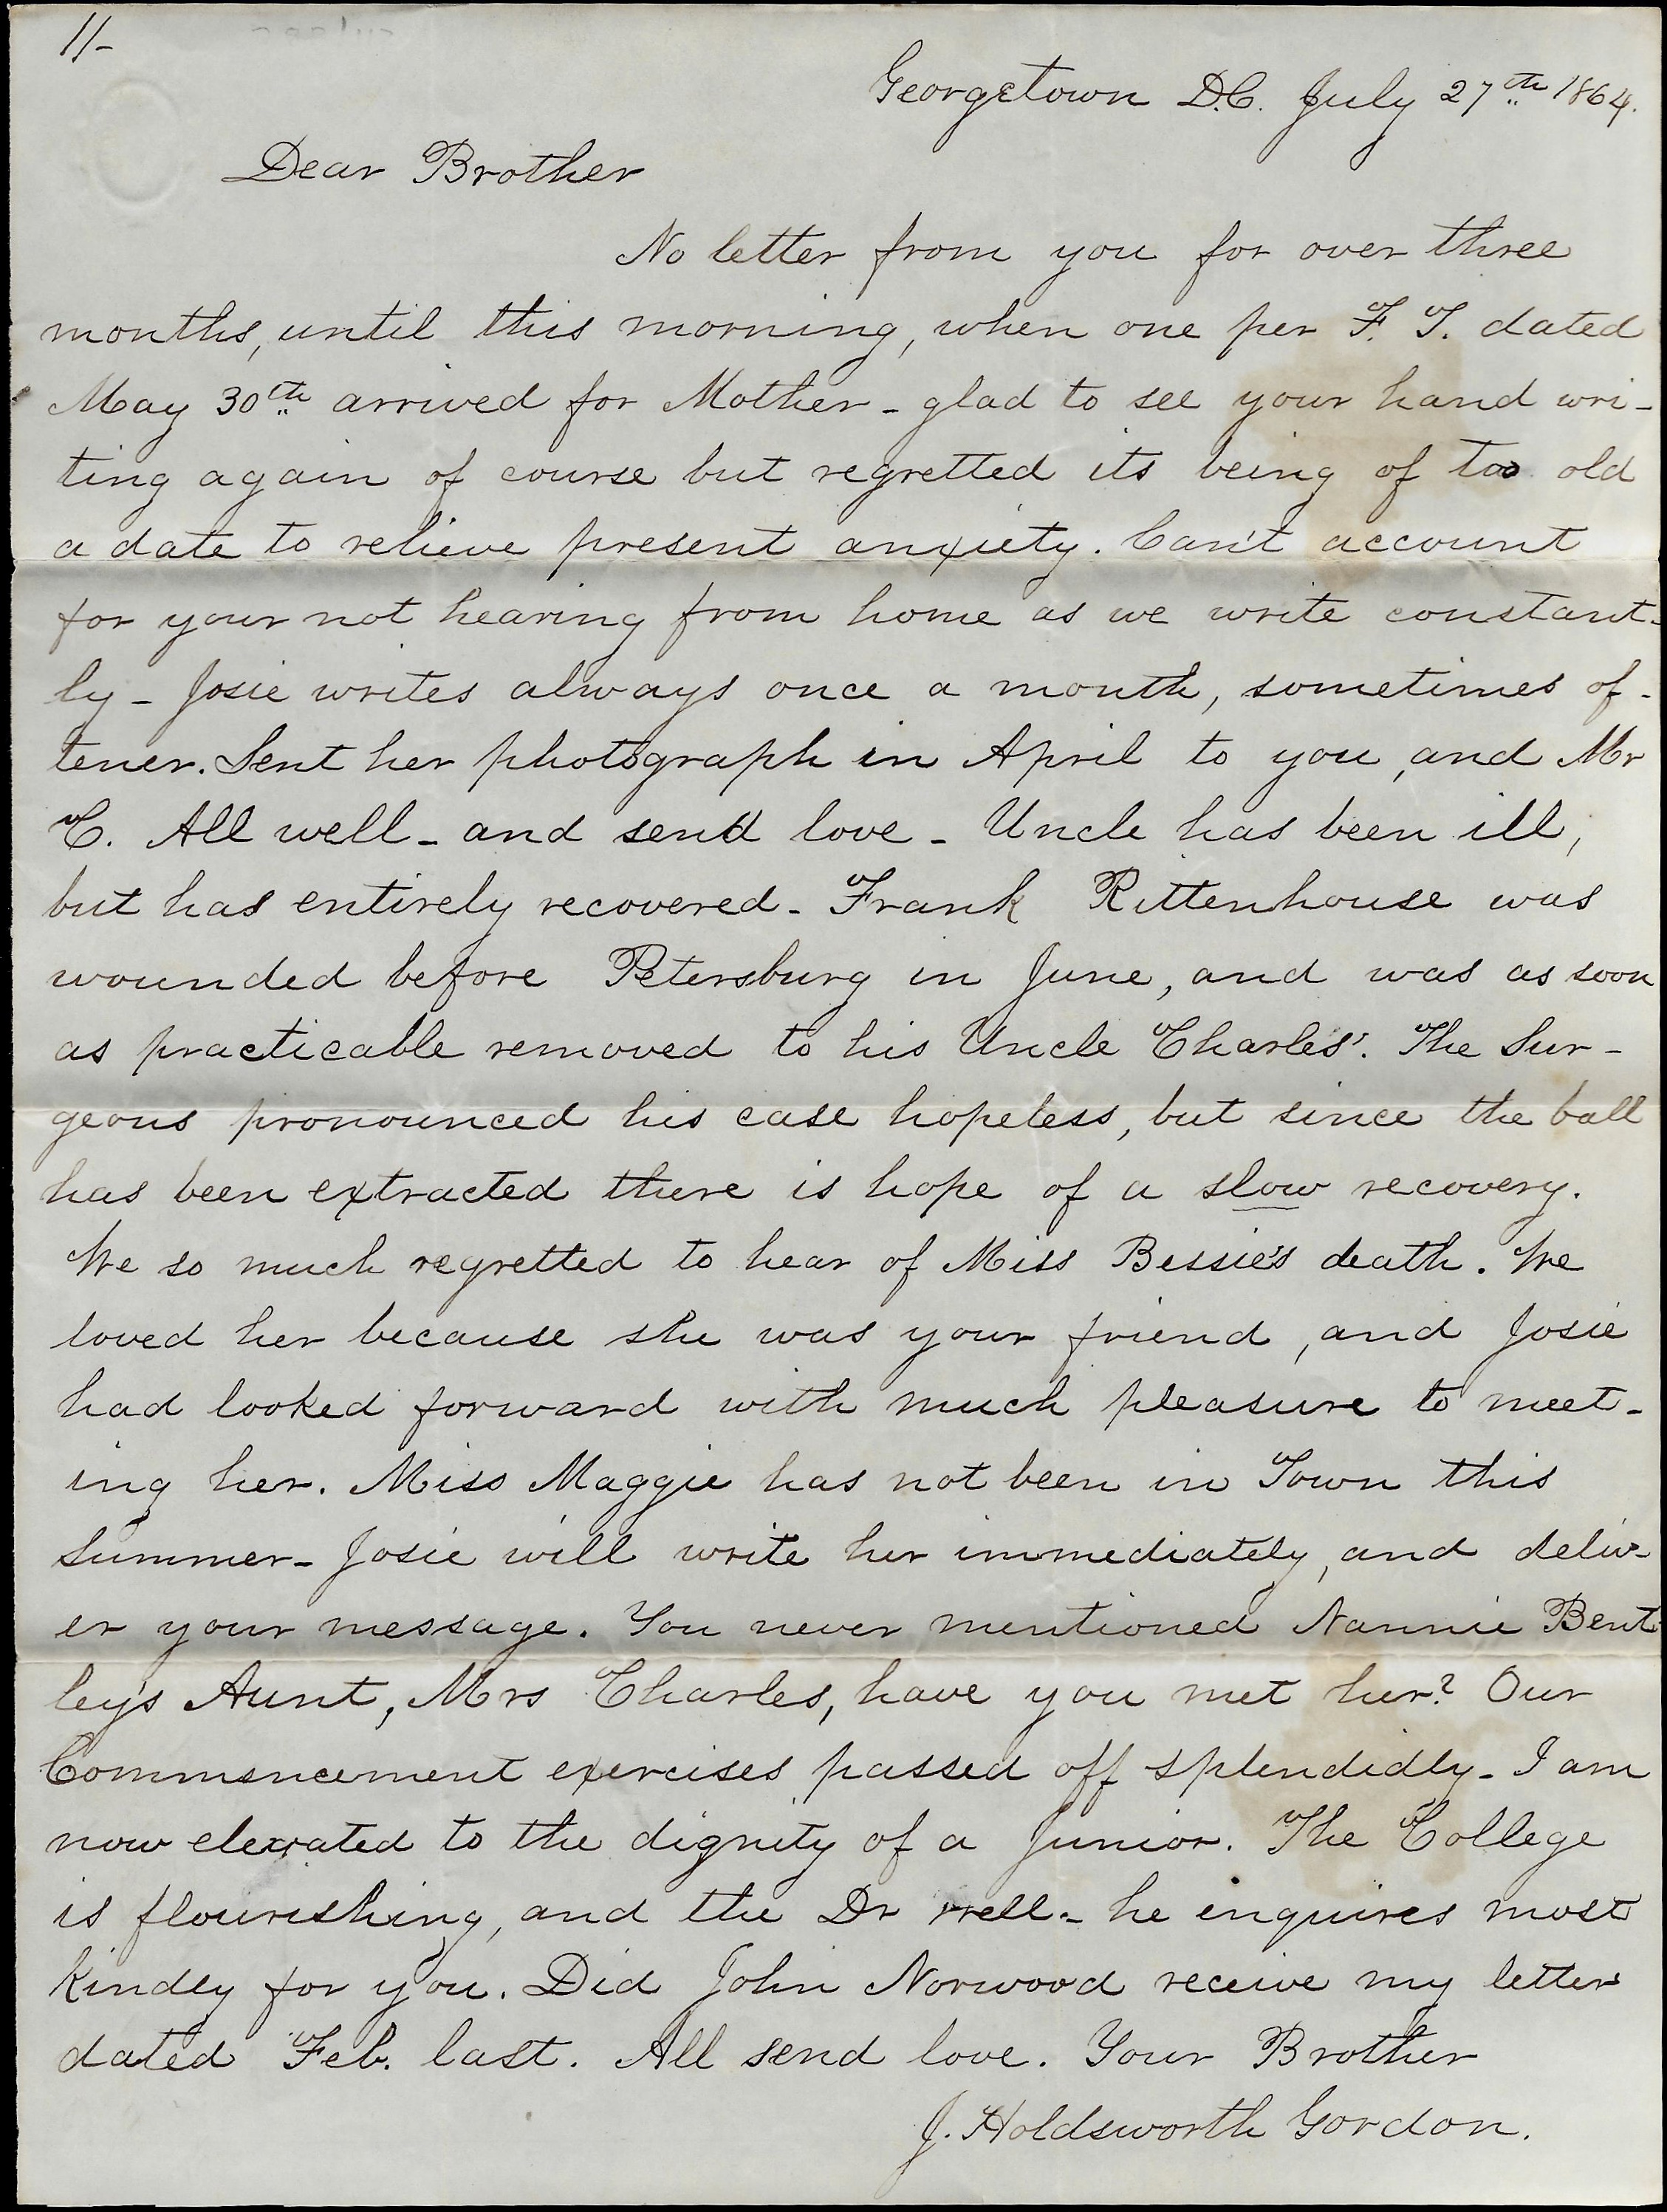 11-
Georgetown D.C. July 27th 1864.
Dear Brother
No letter from you for over three
months, until this morning, when one per F. T. dated
May 30th arrived for Mother - glad to see your hand wri-
ting again of course but regretted its being of too old
a date to relieve present anxiety. Can't account
for your not hearing from home as we write constant-
ly - Josie writes always once a month, sometimes of-
tener. Sent her photograph in April to you, and Mr
C. All well - and send love - Uncle has been ill,
but has entirely recovered - Frank Rittenhouse was
wounded before Petersburg in June, and was as soon
as practicable removed to his Uncle Charles'. The Sur-
geons pronounced his case hopeless, but since the ball
has been extracted there is hope of a slow recovery.
We so much regretted to hear of Miss Bessie's death. We
loved her because she was your friend, and Josie
had looked forward with much pleasure to meet-
ing her. Miss Maggie has not been in Town this
Summer - Josie will write her immediately, and deliv-
er your message. You never mentioned Nannie Bent-
ley's Aunt, Mrs Charles, have you met her? Our
Commencement exercises passed off splendidly - I am
now elevated to the dignity of a Junior. The College
is flourishing, and the Dr well - he enquires most
kindly for you. Did John Norwood receive my letter
dated Feb. last. All send love. Your Brother
J. Holdsworth Gordon.